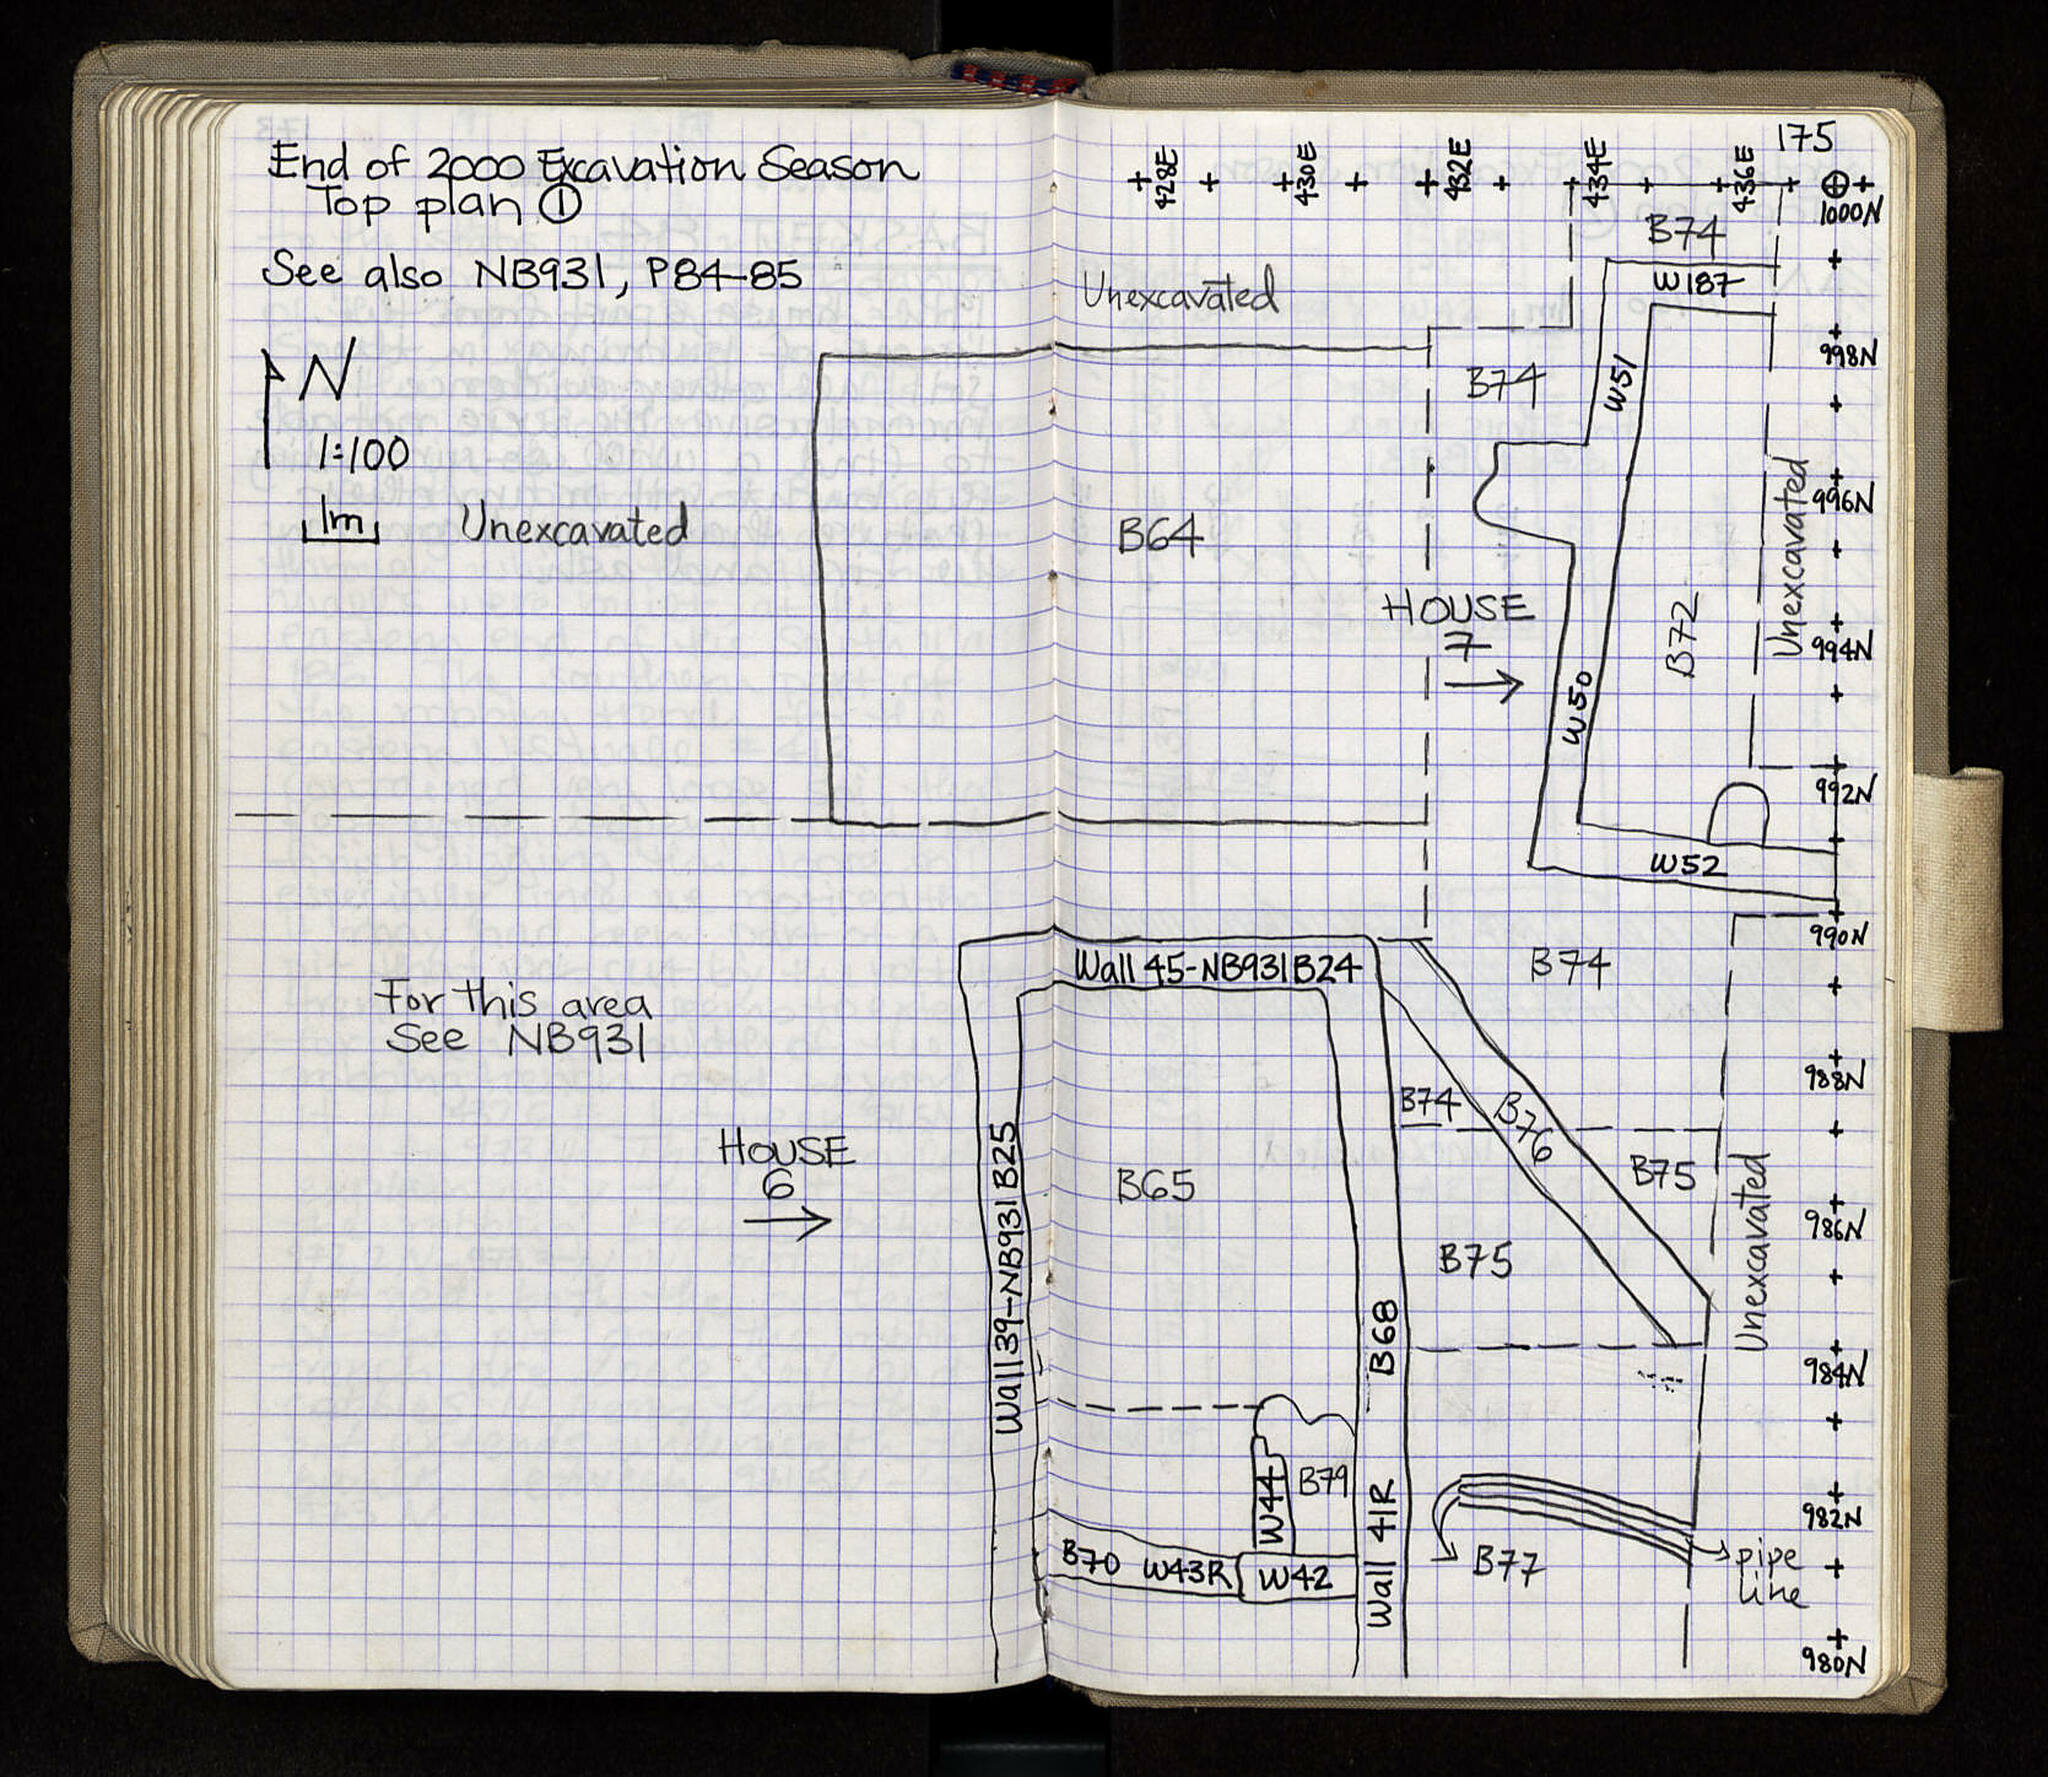 End of 2000 Excavation Season
Top plan ①
See also NB931, P84-85
N
1:100
1m
Unexcavated
For this area
See NB931
HOUSE
6
175
428E
430E
432E
434E
436E
1000N
B74
W187
Unexcavated
998N
B74
W51
996N
Unexcavated
B64
HOUSE
7
B72
994N
W50
992N
W52
990N
Wall 45-NB931B24
B74
988N
B74
B76
Wall 39-NB931B25
B65
B75
986N
B75
Unexcavated
B68
984N
W44
B79
Wall 41R
982N
B70 W43R
W42
B77
pipe
line
980N